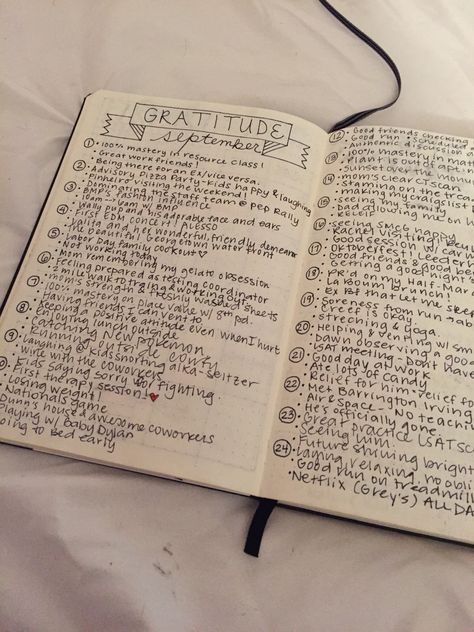 GRATITUDE
september
1 • 100% mastery in resource class!
• Great work friends!
• Being there for an EA/vice versa.
2 • Advisory Pizza Party - kids happy & laughing
• Pinheiro visiting the weekend!
• Dominating the staff team @ pep rally
3 • BMP's fashion influence
• 10am → 6am w/ BMP
• Wally pup and his adorable face and ears
4 • First EDM concert, ALESSO
• Palti and her wonderful, friendly demeanor
• The beautiful Georgetown water front
5 • Labor Day family cookout ♡
• Not working today
6 • Mom remembering my gelato obsession
• Feeling prepared as testing coordinator
• 2 mile walk to training & working out
7 • Mom's strength & freshly washed sheets
• 100% mastery on place value w/ 8th pd.
• Having friends I can vent to
8 • Enjoying lunch outside
• Keeping a positive attitude even when I hurt
• Catching new pokemon
• Running outside comfy
9 • Laughing @ kid snorting alka-seltzer
• Wine with the coworkers
• Kids saying sorry for fighting.
• First therapy session! ♥
• Losing weight!
Nationals game
Dunn's house & awesome coworkers
Playing w/ Baby Dylan
going to bed early
12 • Good friends checking
• Good run • Scheduled
• Authentic discussi
13 • 100% mastery in ma
• Plant is out of
• Sunset over the
14 • mom's clear CT scan
• Staming on
• making my craigslist
15 • Seeing my family
• Dad allowing me
16 • seeing SMCG happy
• Rachel visiting
• Good session w/
17 • Oktoberfest! Leed
• Good friends & good
• Getting a good night's
18 • PR'd on my Half-Mar
• Unbound Brunch!
• Ex BF that let me sleep
19 • Soreness from run
• Creef is out
• Streching & yoga
20 • Helping & venting w/
• Dawn observing a good
• LSAT meeting - don't have
21 • Good day at work
• Ate lots of candy
22 • Relief for him relief fo
• Met Barrington Irving
• Air & Space. No teach
23 • He's officially gone
• Great practice LSAT sc
• Seeing him.
24 • Future shining bright
• Laying, relaxing, no obli
• Good run on treadmill
• Netflix (Grey's) ALL DA